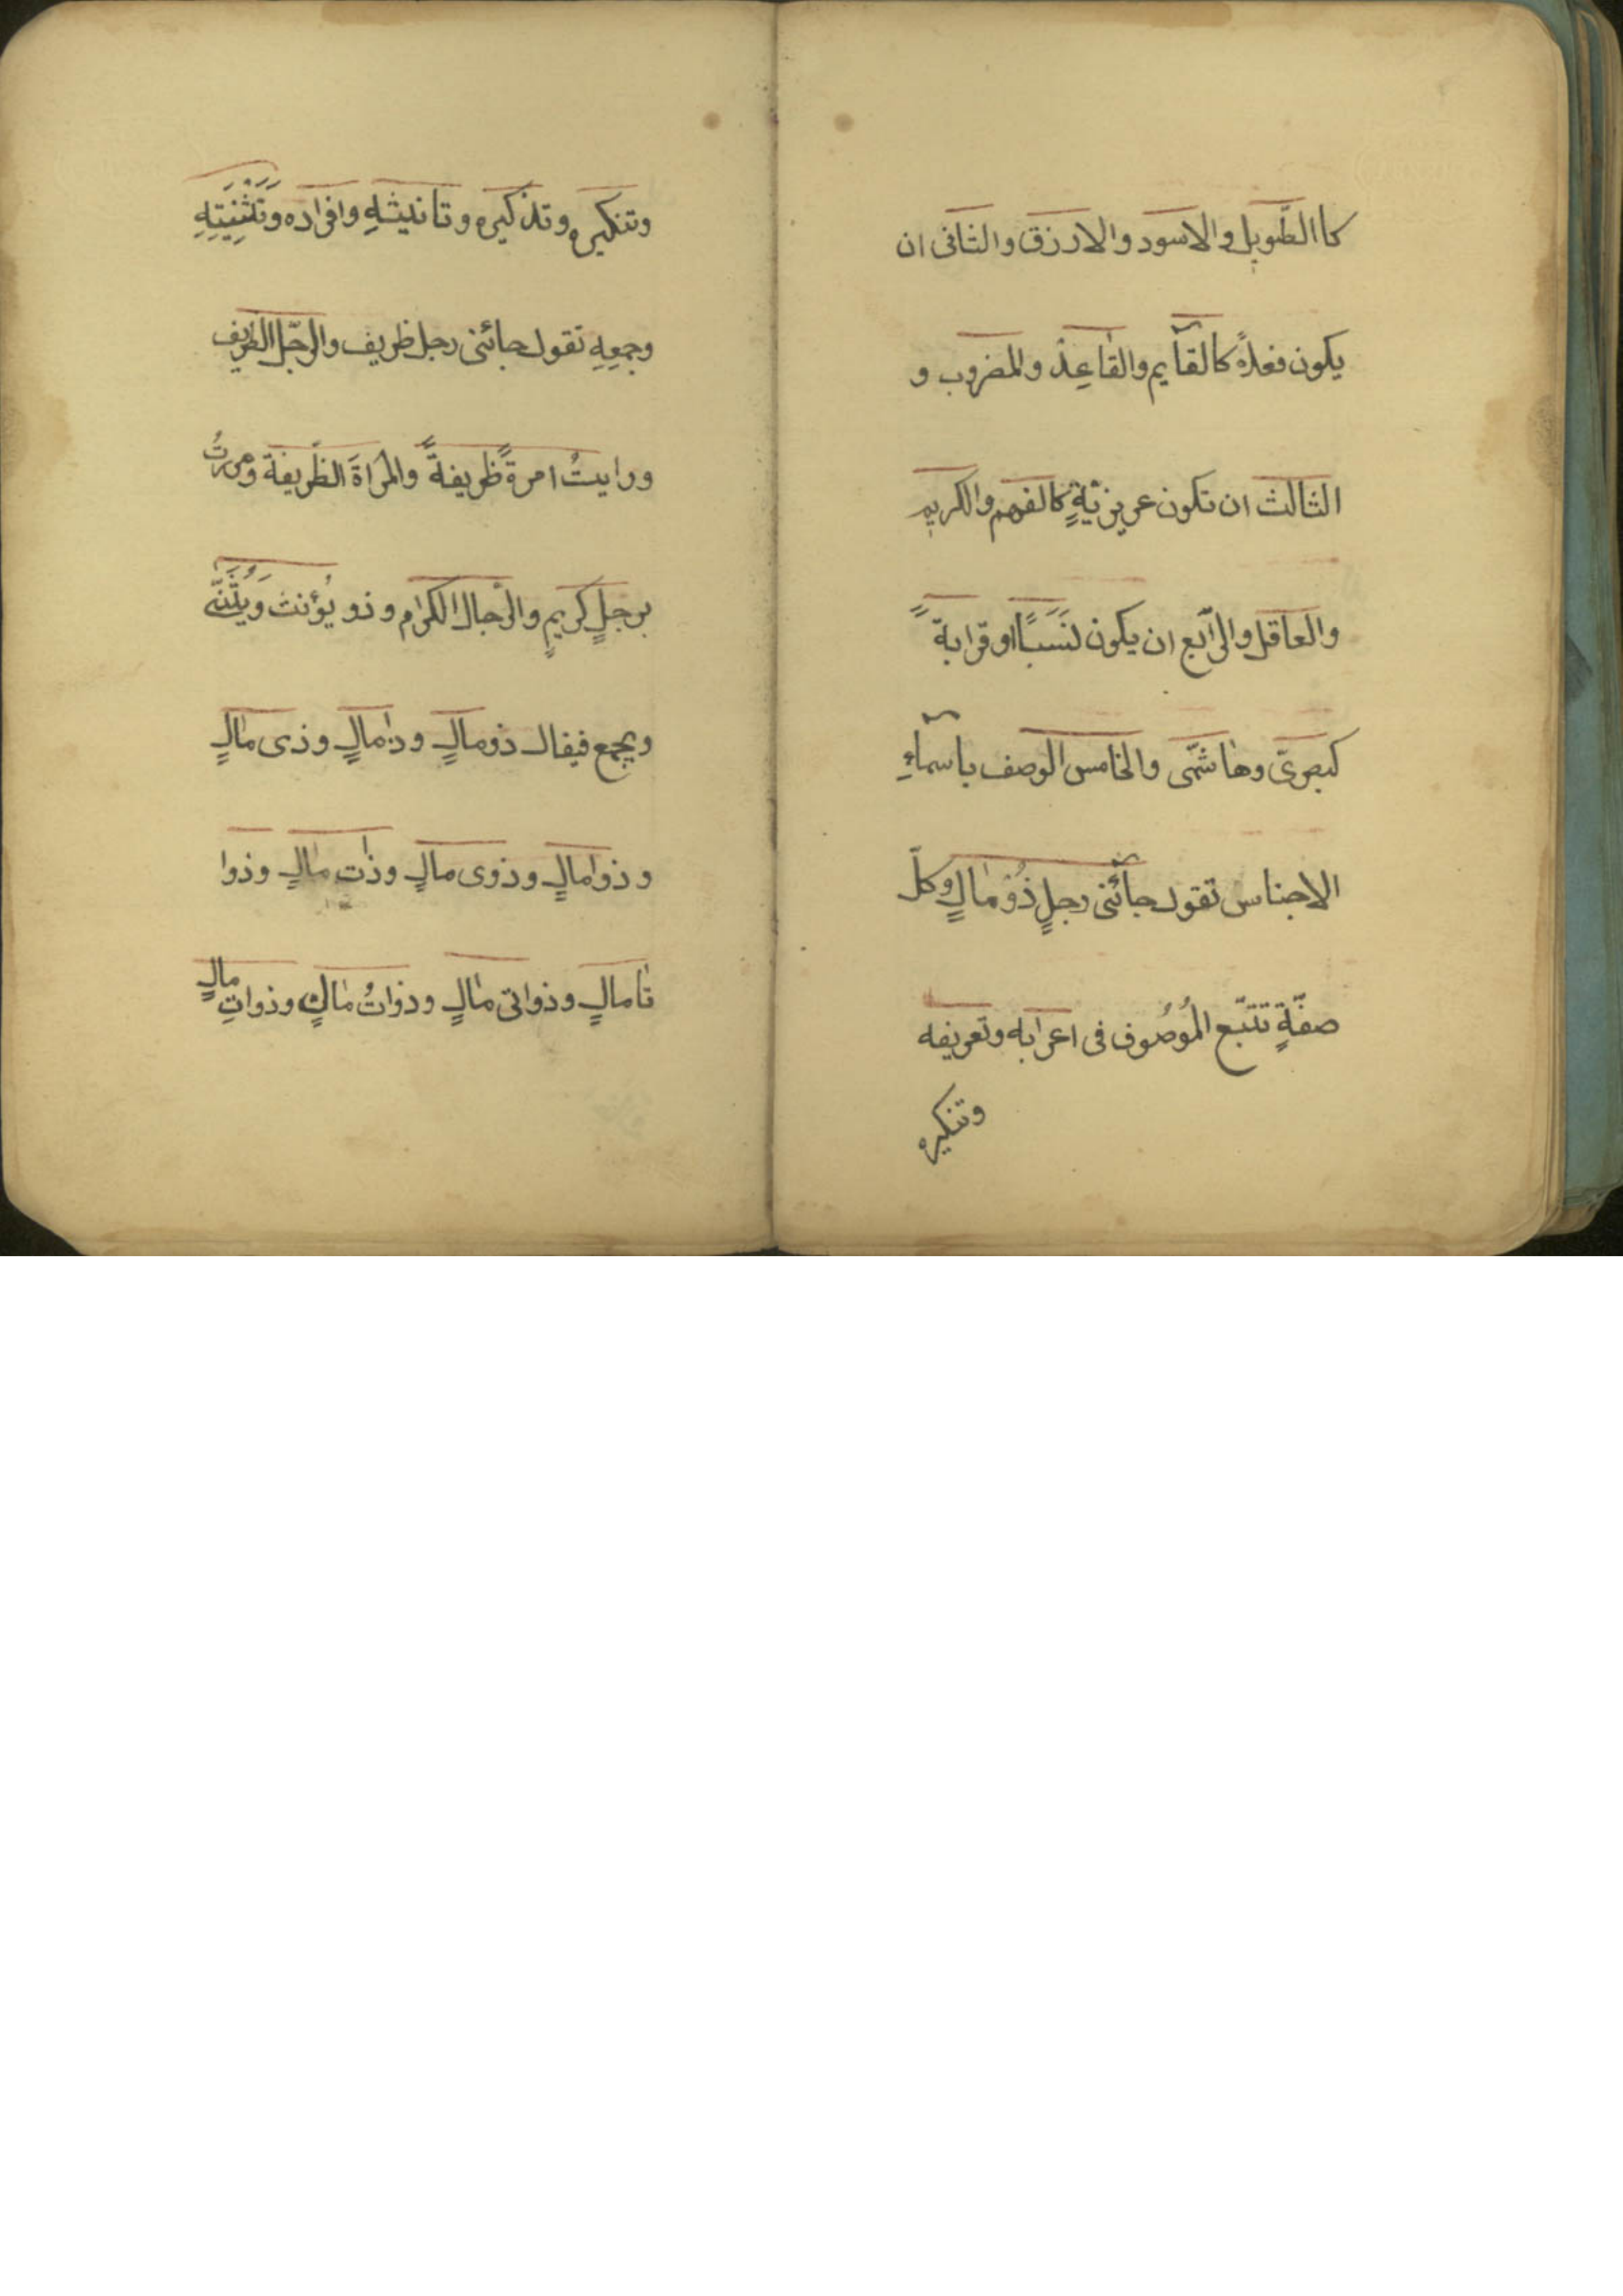 كاالطّويل والاسود والازرق والثانى ان
يكون فعلاً كالقآيم والقاعد والمضروب و
الثالث ان تكون عريزيّةٍ كالفهم والكريم
والعاقل والرّابع ان يكون نَسَبًا او قرابةً
كبصرىّ وهاشمّى والخامس الوصف باسمآءِ
الاجناس تقول جآئنى رجلٍ ذُو مالٍ وكلّ
صفّةٍ تتبّع المُوصُوف فى اعرابه وتعريفه
وتنكيره
وتنكيره وتذكيره وتانيثهِ وافراده وتَثْنِيَتِهِ
وجمعِهِ تقول جائنى رجل ظريف والرّجل الظريف
ورايتُ امرةً ظريفةً والمراةَ الظّريفة ومررتُ
برجلٍ كريمٍ والرّجال الكرام وذو يُؤنث وَيُثَنّى
ويجمع فيقال ذومالٍ وذامالٍ وذى مالٍ
وذوامالٍ وذوى مالٍ وذات مالٍ وذوا
تامالٍ وذواتى مالٍ وذواتُ مالٍ وذواتِ مالٍ